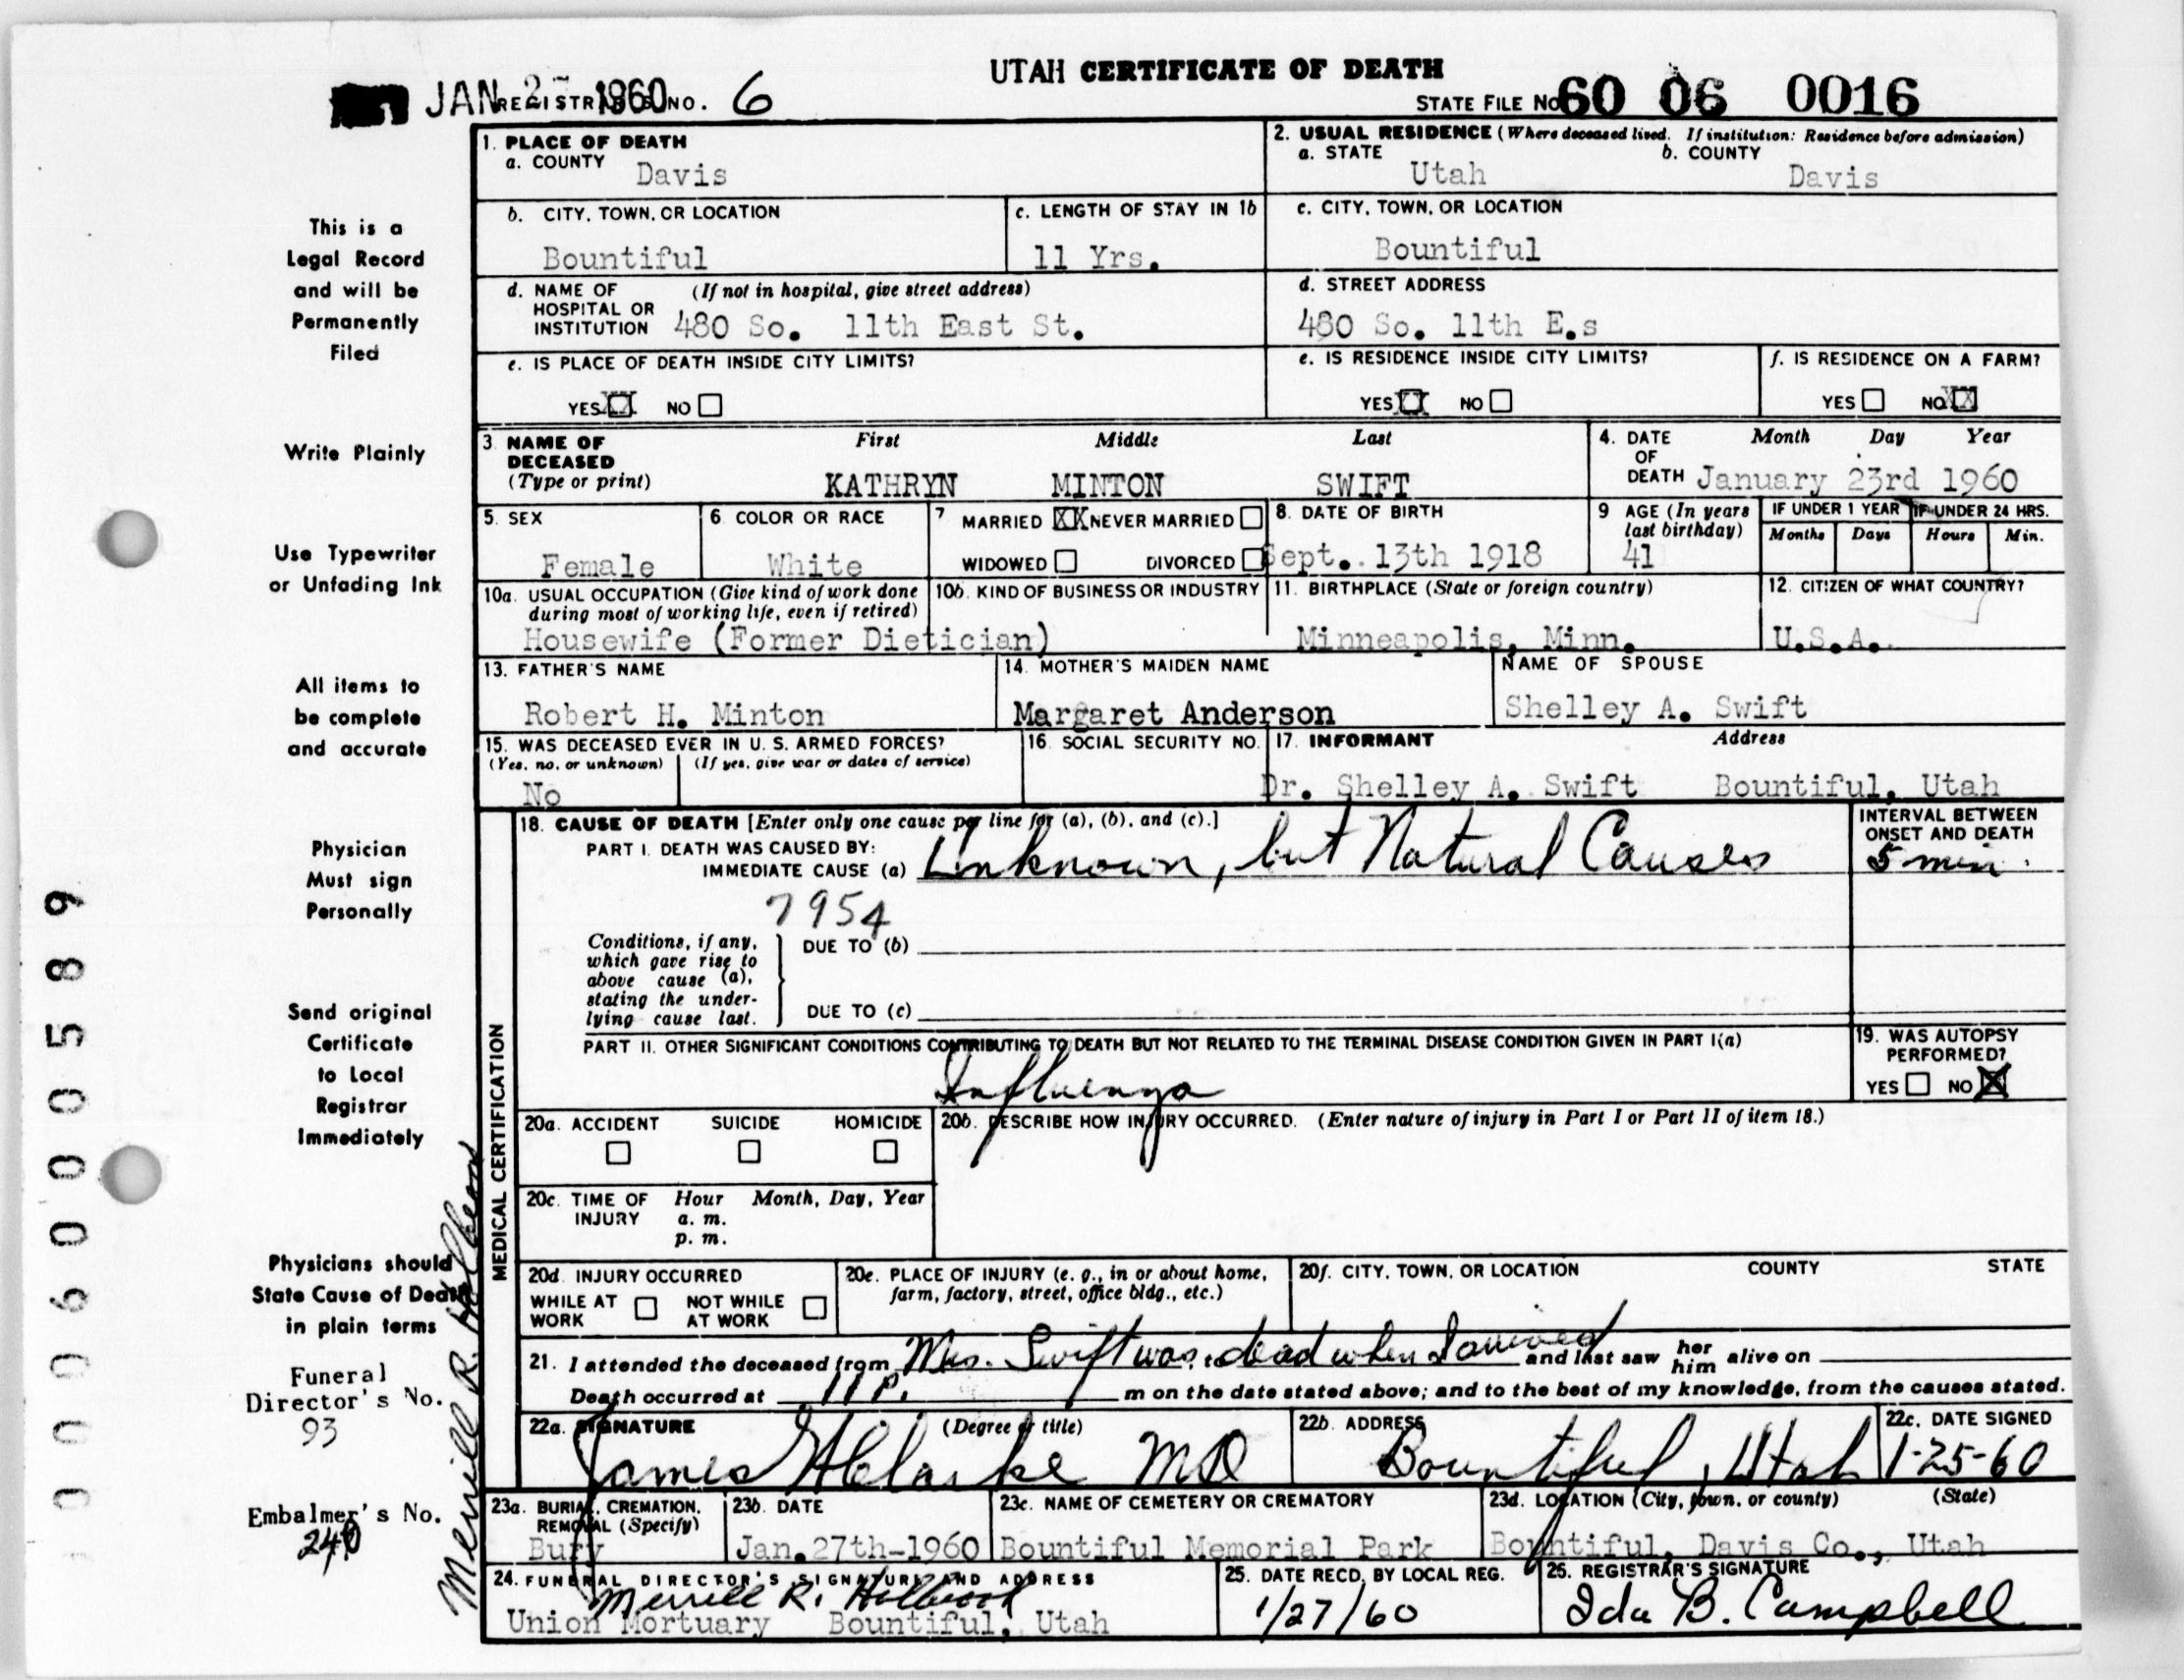 UTAH CERTIFICATE OF DEATH
JAN 27 1960 REGISTRAR'S NO. 6
STATE FILE NO. 60 06 0016
1. PLACE OF DEATH
a. COUNTY Davis
2. USUAL RESIDENCE (Where deceased lived. If institution: Residence before admission)
a. STATE Utah b. COUNTY Davis
b. CITY, TOWN, OR LOCATION Bountiful
c. LENGTH OF STAY IN 1b 11 Yrs.
c. CITY, TOWN, OR LOCATION Bountiful
d. NAME OF (If not in hospital, give street address)
HOSPITAL OR
INSTITUTION 480 So. 11th East St.
d. STREET ADDRESS
480 So. 11th E.s
e. IS PLACE OF DEATH INSIDE CITY LIMITS?
YES XX NO
e. IS RESIDENCE INSIDE CITY LIMITS?
YES XX NO
f. IS RESIDENCE ON A FARM?
YES NO XX
3. NAME OF DECEASED (Type or print)
First Middle Last
KATHRYN MINTON SWIFT
4. DATE OF DEATH Month Day Year
January 23rd 1960
5. SEX Female
6. COLOR OR RACE White
7 MARRIED XX NEVER MARRIED
WIDOWED DIVORCED
8. DATE OF BIRTH
Sept. 13th 1918
9 AGE (In years last birthday) 41
IF UNDER 1 YEAR Months Days
IF UNDER 24 HRS. Hours Min.
10a. USUAL OCCUPATION (Give kind of work done
during most of working life, even if retired)
Housewife (Former Dietician)
10b. KIND OF BUSINESS OR INDUSTRY
11. BIRTHPLACE (State or foreign country)
Minneapolis, Minn.
12. CITIZEN OF WHAT COUNTRY?
U.S.A.
13. FATHER'S NAME
Robert H. Minton
14. MOTHER'S MAIDEN NAME
Margaret Anderson
NAME OF SPOUSE
Shelley A. Swift
15. WAS DECEASED EVER IN U. S. ARMED FORCES?
(Yes, no, or unknown) (If yes, give war or dates of service)
No
16. SOCIAL SECURITY NO.
17. INFORMANT Address
Dr. Shelley A. Swift Bountiful, Utah
MEDICAL CERTIFICATION
18. CAUSE OF DEATH [Enter only one cause per line for (a), (b), and (c).]
PART I. DEATH WAS CAUSED BY:
IMMEDIATE CAUSE (a) Unknown, but Natural Causes
7954
INTERVAL BETWEEN
ONSET AND DEATH
5 min.
Conditions, if any,
which gave rise to
above cause (a),
stating the under-
lying cause last.
DUE TO (b)
DUE TO (c)
PART II. OTHER SIGNIFICANT CONDITIONS CONTRIBUTING TO DEATH BUT NOT RELATED TO THE TERMINAL DISEASE CONDITION GIVEN IN PART I(a)
Influenza
19. WAS AUTOPSY
PERFORMED?
YES NO X
20a. ACCIDENT SUICIDE HOMICIDE
20b. DESCRIBE HOW INJURY OCCURRED. (Enter nature of injury in Part I or Part II of item 18.)
20c. TIME OF INJURY Hour Month, Day, Year
a. m.
p. m.
20d. INJURY OCCURRED
WHILE AT WORK NOT WHILE AT WORK
20e. PLACE OF INJURY (e. g., in or about home,
farm, factory, street, office bldg., etc.)
20f. CITY, TOWN, OR LOCATION COUNTY STATE
21. I attended the deceased from Mrs. Swift was dead when I arrived and last saw her him alive on
Death occurred at 11 P. m on the date stated above; and to the best of my knowledge, from the causes stated.
22a. SIGNATURE (Degree or title)
James H Clarke MD
22b. ADDRESS
Bountiful, Utah
22c. DATE SIGNED
1-25-60
23a. BURIAL, CREMATION,
REMOVAL (Specify)
Bury
23b. DATE
Jan. 27th-1960
23c. NAME OF CEMETERY OR CREMATORY
Bountiful Memorial Park
23d. LOCATION (City, town, or county) (State)
Bountiful, Davis Co., Utah
24. FUNERAL DIRECTOR'S SIGNATURE AND ADDRESS
Merrill R. Holbrook
Union Mortuary Bountiful, Utah
25. DATE RECD. BY LOCAL REG.
1/27/60
26. REGISTRAR'S SIGNATURE
Ida B. Campbell
This is a
Legal Record
and will be
Permanently
Filed
Write Plainly
Use Typewriter
or Unfading Ink
All items to
be complete
and accurate
Physician
Must sign
Personally
Send original
Certificate
to Local
Registrar
Immediately
Physicians should
State Cause of Death
in plain terms
Funeral
Director's No.
93
Embalmer's No.
240
Merrill R. Holbrook
0006000589